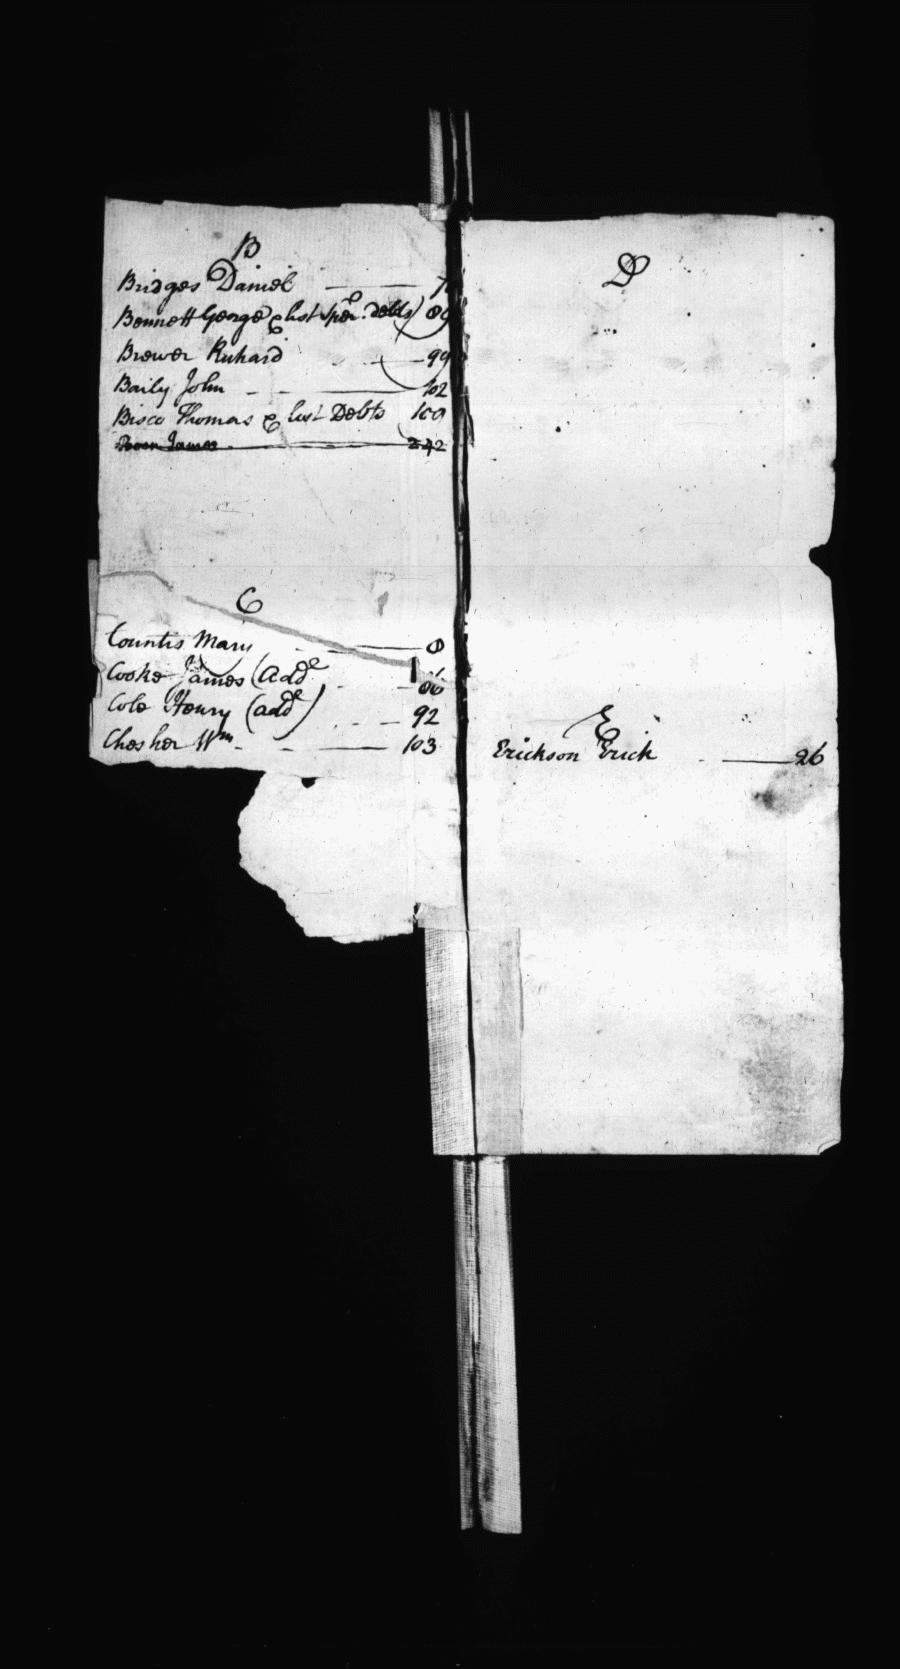 B
Bridges Daniel 7
Bennett George & list Sper. debts
Brewer Richard 99
Baily John 102
Bisco Thomas & list Debts
James 242
C
Countis Mary 8
Cooke James (Add.l 86
Cole Henry (add.l) 92
Chesher Wm. 103
D
E
Erickson Erick 26